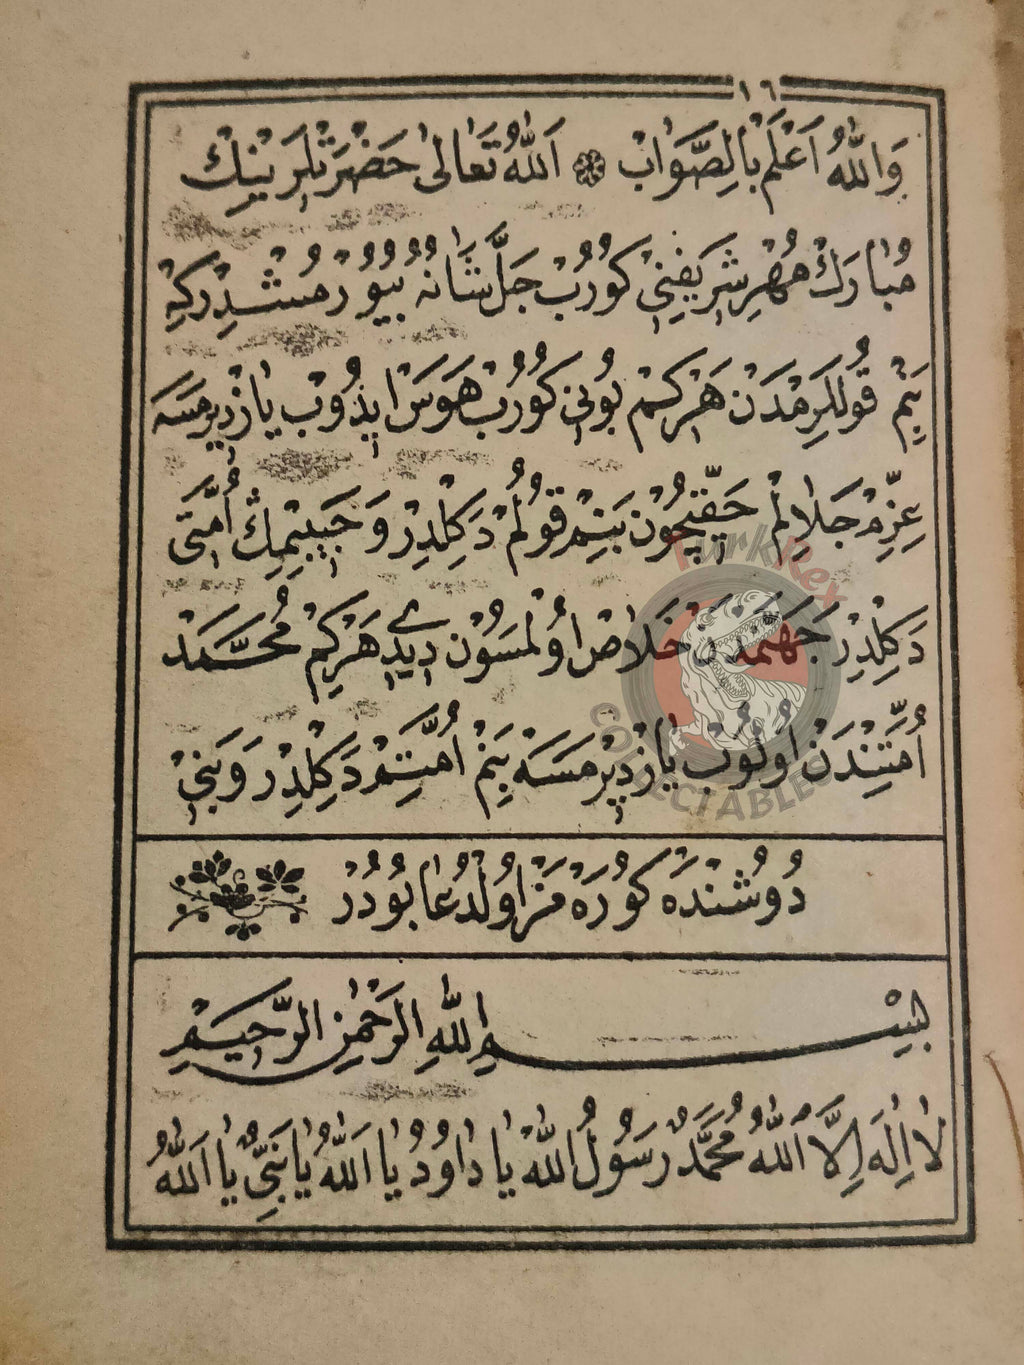 ١٦
وَاللّٰهُ اَعْلَمُ بِالصَّوَابْ ❁ اَللّٰهُ تَعَالٰى حَضْرَتْلَرِينِكْ
مُبَارَكْ مُهْرِ شَرِيفِنِي كُورُبْ جَلَّ شَانُهُ بُيُورْمُشْدِرْكِهْ
بَنِمْ قُولْلَرِمْدَنْ هَرْكِمْ بُونِي كُورُبْ هَوَسْ ايدُوبْ يَازْدِيرْمَسَه
عِزِّمْ جَلَالِمْ حَقِّيچُونْ بَنِمْ قُولُمْ دَكِلْدِرْ وَ حَبِيبِمِڭْ اُمَّتِى
دَكِلْدِرْ جَهَنَّمْدَنْ خَلَاصْ اُولْمَسُونْ دِيدِي هَرْكِمْ مُحَمَّدْ
اُمَّتِنْدَنْ اُولُوبْ يَازْدِيرْمَسَهْ بَنِمْ اُمَّتِمْ دَكِلْدِرْ وَ بَنِي
دُوشُنْدَهْ كُورَهْ مَزْ اُولْ دُعَا بُودُرْ
بِسْمِ اللّٰهِ الرَّحْمٰنِ الرَّحِيمِ
لَا اِلٰهَ اِلَّا اللّٰهُ مُحَمَّدٌ رَسُولُ اللّٰهِ يَا دَاوُدُ يَا اَللّٰهُ يَا نَبِىُّ يَا اَللّٰهُ
TurkRex
COLLECTABLES